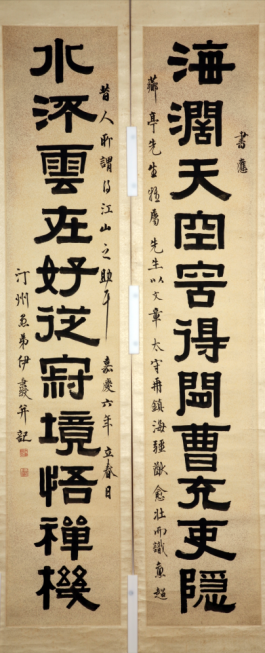 海濶天空容得閒曹充吏隱
書應
薌亭先生雅屬 先生以文章太守再鎮海疆猷愈壯而識愈超
昔人所謂得江山之助乎 嘉慶六年立春日
水流雲在好從寂境悟禪機
汀州愚弟伊秉綬并記